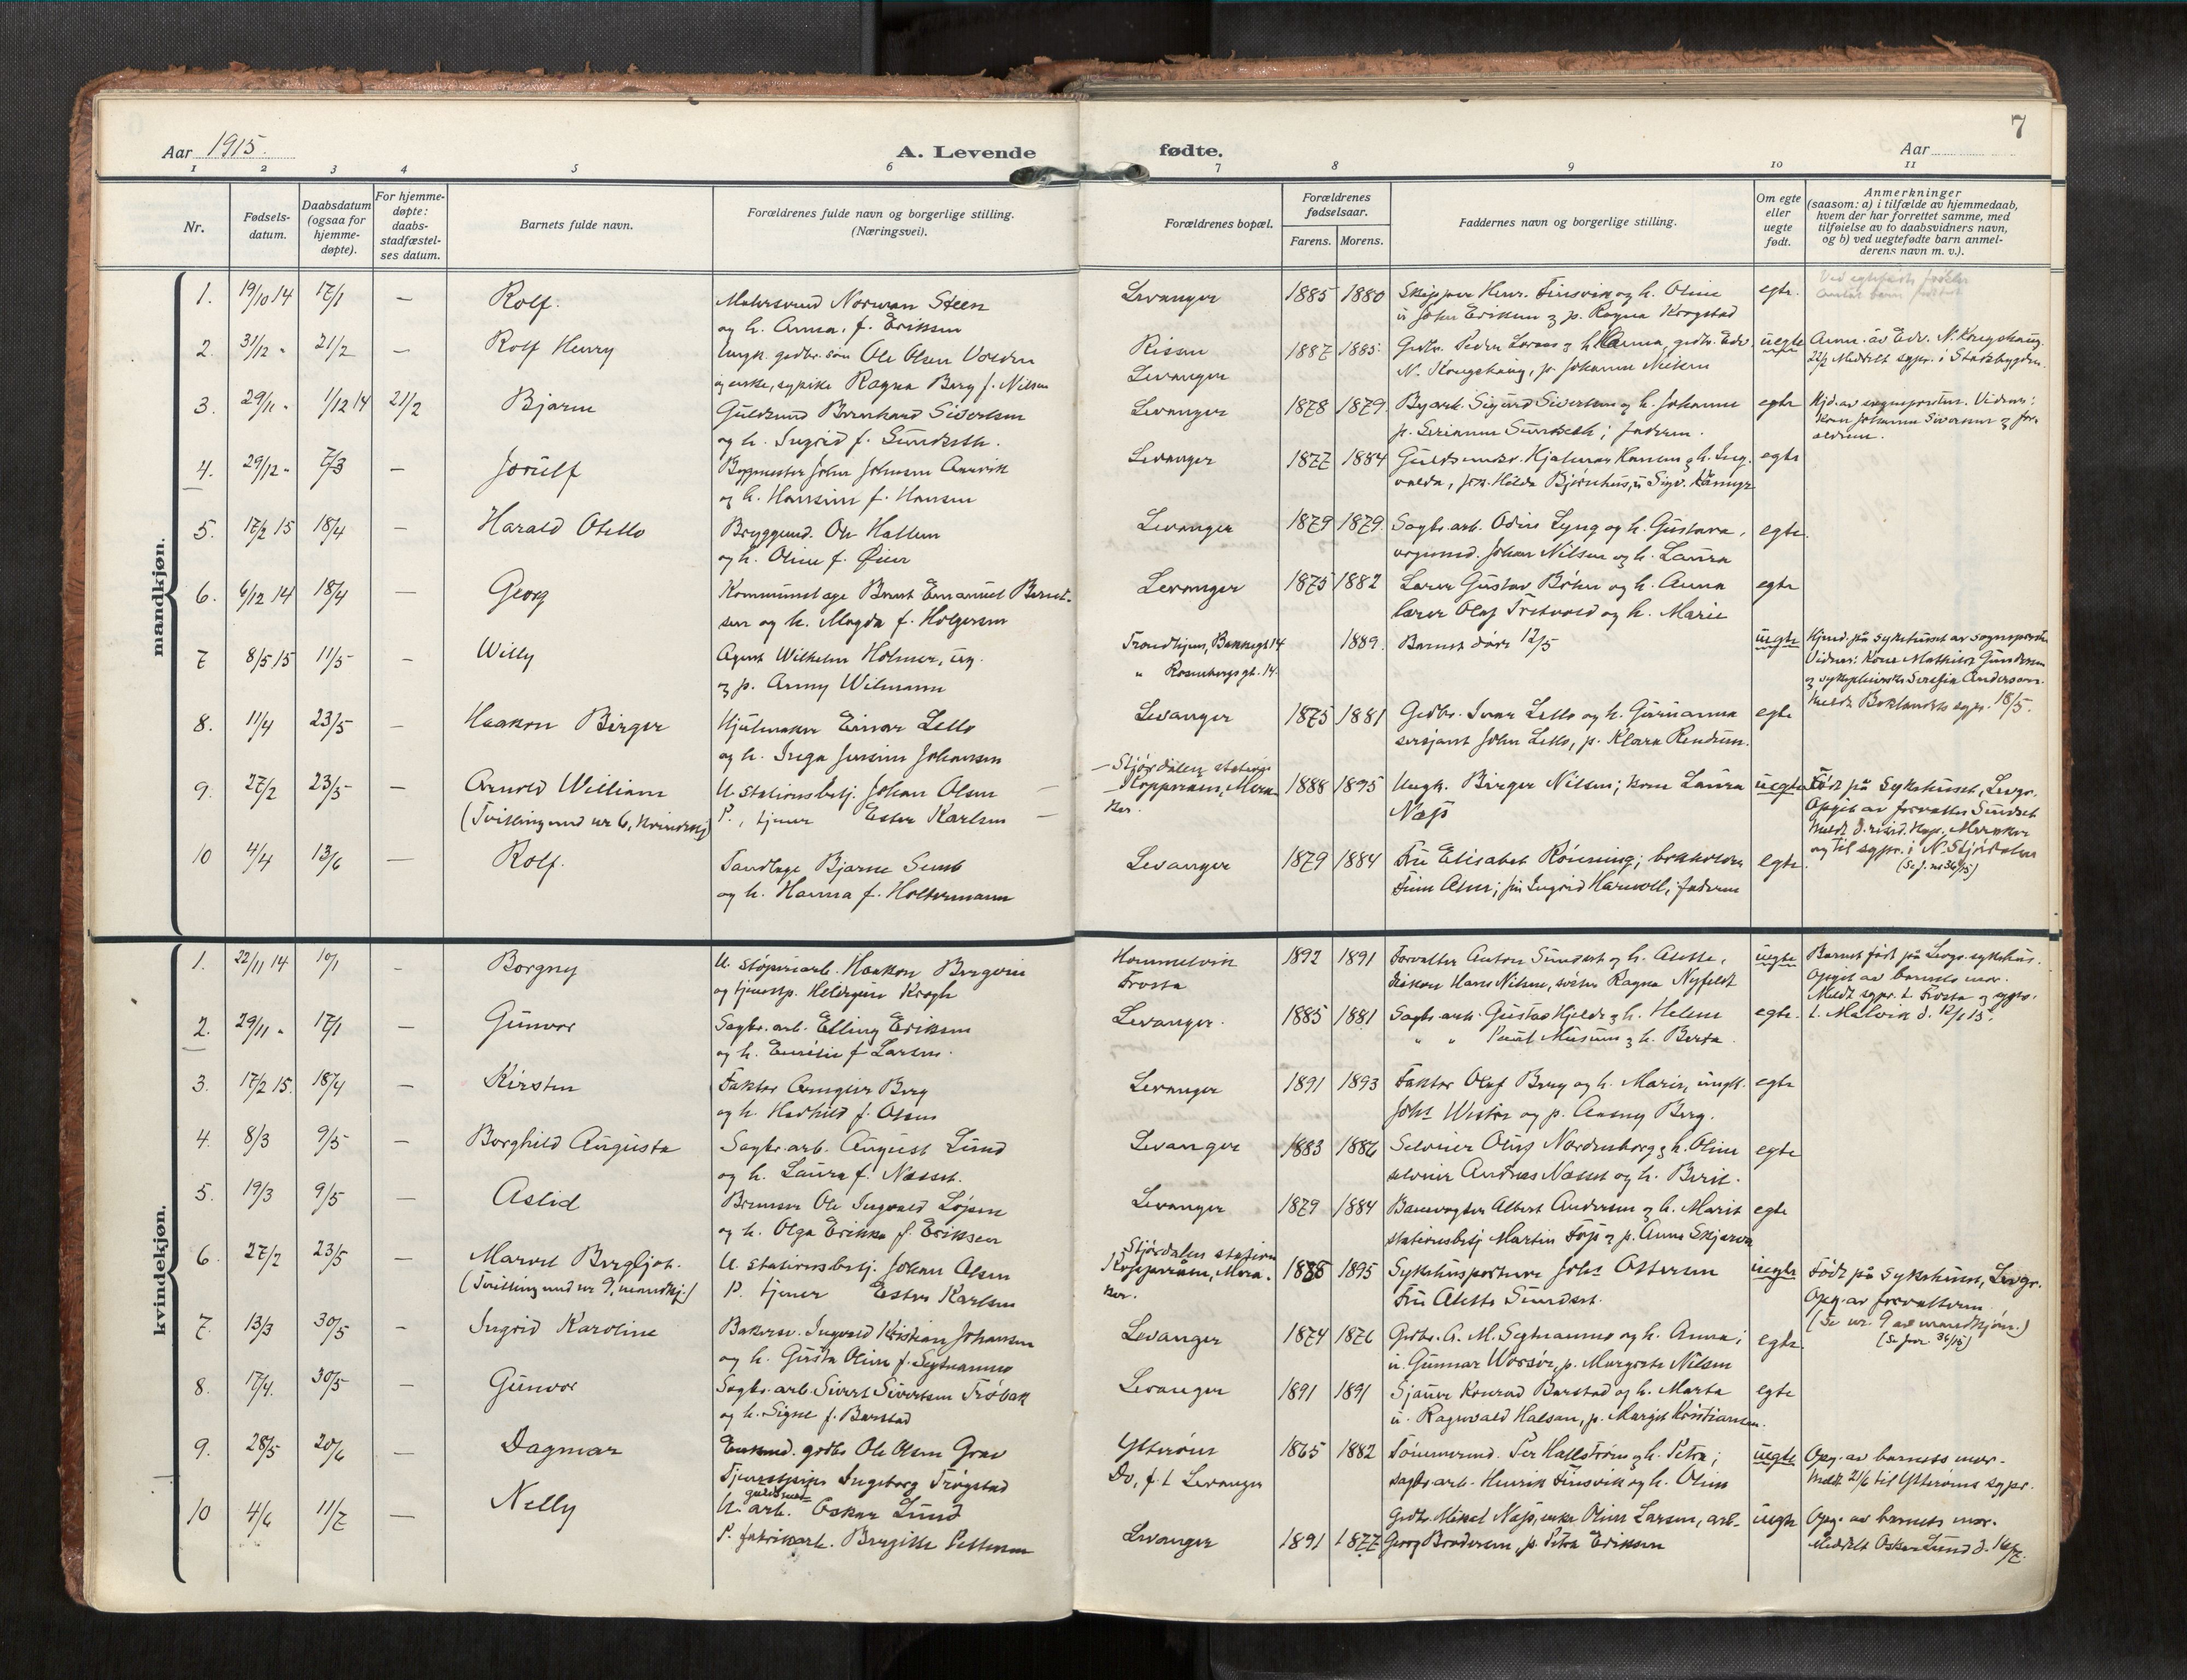 7
Aar 1915.
A. Levende fødte.
Aar
1 2 3 4 5 6 7 8 9 10 11
Nr.
Fødsels-
datum.
Daabsdatum
(ogsaa for
hjemme-
døpte).
For hjemme-
døpte:
daabs-
stadfæstel-
ses datum.
Barnets fulde navn.
Forældrenes fulde navn og borgerlige stilling.
(Næringsvei).
Forældrenes bopæl.
Forældrenes
fødselsaar.
Farens. Morens.
Faddernes navn og borgerlige stilling.
Om egte
eller
uegte
født.
Anmerkninger
(saasom: a) i tilfælde av hjemmedaab,
hvem der har forrettet samme, med
tilføielse av to daabsvidners navn,
og b) ved uegtefødte barn anmel-
derens navn m. v.).
mandkjøn.
1. 19/10 14 17/1 — Rolf. Norman Steen Levanger 1885 1880 Skipper Henr. Finsvik og h. Oline egte.
og h. Anna, f. Eriksen u John Eriksen & p. Ragna Krogstad
2. 31/12 " 21/2 — Rolf Henry Ungk. gedbr. søn Ole Olsen Rissa 1887 1885 uegte
Ragna Berg f. Nilsen Levanger N. Kongshaug, p. Johanna Nilsen 22/2 Meddelt sypr. i Stadsbygden
3. 29/11 " 1/12 14 21/2 Bjarne Guldsmed Bernhard Sivertsen Levanger 1878 1879 Byarb. Sigurd Sivertsen og h. Johanne egte Hjd. av sognepresten. Vidner:
og h. Ingrid f. Sundseth. Sundseth; faderen. Kone Johanna Sivertsen & for-
ældrene.
4. 29/12 " 7/3 — Jørulf Bygmester Johan Johnsen Levanger 1877 1884 Guldsmedsv. Hjalmar Hansen & h. Ing- egte
og h. Hansine f. Hansen valda, frk. Hilda Bjørnhus, u Sigv.
5. 17/2 15 18/4 — Harald Otello Bryggerid. Ole Hallem Levanger 1879 1879 Sagbr. arb. Odin Lyng og h. Gustava, egte.
og h. Oline f. Øien Johan Nilsen og h. Laura
6. 6/12 14 18/4 — Georg Kommunelæge Bernt Emanuel Bernt- Levanger 1875 1882 Lærer Gustav Bøhn og h. Anna egte
sen og h. Magda f. Holgersen lærer Olaf Tretvold og h. Marie
7 8/5 15 11/5 — Willy Agent Wilhelm Holmer, ug. Trondhjem, Bakkegt 14 1889. Barnet døde 12/5 uegte Hjmd. på sykehuset av sognepresten
& p. Anny Wilmann " Rosenborgsgt. 14. Vidner: Kone Mathilde Gundersen
og sykepleierske Serafia Anderson.
Meldt Baklandets sypr. 18/5.
8. 11/4 23/5 — Haakon Birger Hjulmaker Einar Lello Levanger 1875 1881 Gedbr. Ivar Lello og h. Gurianna egte
og h. Inga Jensine Johansen sersjant John Lello, p. Klara Rendum.
9. 27/2 23/5 — Arnold William U. stationsbetj. Johan Olsen — Stjørdalen station 1888 1895 Ungk. Birger Nilsen; kone Laura uegte Født på Sykehuset, Levgr.
(Tvilling med nr 6, kvindekj) P., tjener Ester Karlsen — Kopperaaen, Mera- Næss Opgit av forvalter Sundset
ker. Meldt d. resid. kap. Meraker
og til sypr. i N. Stjørdalen
(Se j. nr 36/15)
10 4/4 13/6 — Rolf. Tandlæge Bjarne Semb Levanger 1879 1884 Fru Elisabet Rönning; bokholder egte.
og h. Hanna f. Holtermann Finn Alsen; frk Ingrid Harwoll; faderen
kvindekjøn.
1. 22/11 14 10/1 - Borgny U. støperiarb. Haakon Hommelvik 1892 1891 Forvalter Anton Sundset og h. Alette, uegte Barnet født på Levgr. sykehus.
og tjenestp. Heldrgine Krogh Frosta diakon Hans Nilsen, søster Ragna Nyfeldt Opgit av barnets mor.
Meldt sypr. t. Frosta & sypr.
2. 29/11 " 17/1 — Gunvor Sagbr. arb. Elling Eriksen Levanger. 1885 1881 Sagbr arb. Gustav Hjelde & h. Helene egte. t. Malvik d. 12/1 15.
og h. f. Larsen. " " Paul Musum & h. Berta
3. 17/2 15. 18/4 — Kirsten Faktor Arngeir Berg Levanger 1891 1893 Faktor Olaf Berg og h. Marie, ungk. egte
og h. Hedhild f. Olsen Johs Wister og p. Aasny Berg.
4. 8/3 9/5 — Borghild Augusta Sagbr. arb. August Lund Levanger 1883 1886 Selveier Oluf Nordenborg & h. Oline egte
og h. Laura f. Næsset. selveier Andreas Næsset og h. Berit.
5. 19/3 9/5 — Aslid Bremser Ole Ingvald Levanger 1879 1884 Banevogter Albert Andersen & h. Marit egte
og h. Olga Erikka f. Eriksen stationsbetj Martin & p. Anna
6. 27/2 23/5 — Marvel Bergljot. U. stationsbetj. Johan Olsen Stjørdalen station 1888 1895 Sykehusportner Johs Ottersen uegte Født på Sykehuset, Levgr.
(Tvilling med nr 9, mandkj.) P. tjener Ester Karlsen Kopperaaen, Mera- Fru Alette Sundset. Opg. av forvalteren
ker. (Se nr. 9 av mandkjøn.)
(Se jour. 36/15)
7. 13/3 30/5 - Ingrid Karoline Bakersv. Ingvald Kristian Johansen Levanger 1874 1876 Gedbr. A. M. Segtnanmo og h. Anna; egte.
og h. Gusta Oline f. Segtnanmo u. Gunnar Worsøe, p. Margrete Nilsen
8. 17/4. 30/5 — Gunvor Sagbr. arb. Sivert Sivertsen Trøbak Levanger 1891 1891 Sjauer Konrad Barstad og h. Marta egte
og h. Signe f. Barstad u. Ragnvald Halsan, p. Margit Kristiansen.
9. 28/5 20/6 — Dagmar Enkemd. gedbr Ole Olsen Grav Ytterøen 1865 1882 Tømmermd. Per Hallstrøm og h. Petra; uegte Opg. av barnets mor.
Tjenestepige Ingeborg Trøgstad Do, f. t. Levanger sagbr. arb. Henrik Finsvik og h. Oline Meldt 21/6 til Ytterøens sypr.
10 4/6 11/7 — Nelly U. arb. Oskar Lund Levanger 1891 1877 Gedbr. Mikael Næss, enke Oline Larsen, arb- uegte Opg. av barnets mor.
P. fabrikarb. Bergitte Pettersen Georg Brodersen, p. Petra Eriksen Meddelt Oskar Lund d. 16/7.